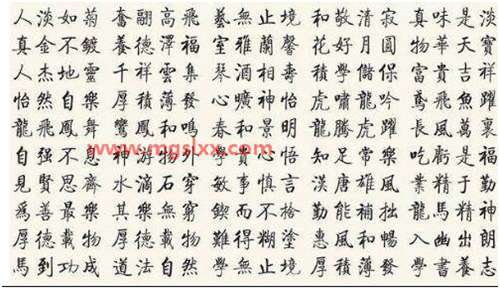 人淡如菊 奮翮高飛 藝無止境 和敬清寂 真味是淡
真金不鍍 養德澤福 室雅蘭馨 花好月圓 物華天寶
人杰地靈 千祥雲集 琴酒相壽 積學儲保 富貴吉祥
怡然自樂 厚積薄發 心曠神怡 虎嘯龍吟 鳶飛魚躍
龍飛鳳舞 鸞鳳和鳴 春和景明 龍騰虎躍 長風萬裏
www.mgslxx.com
自强不息 神游物外 學貴心悟 知足常樂 吃虧是福
見賢思齊 水滴石穿 敏事慎言 漢唐雄風 業精于勤
為善最樂 其樂無窮 鍥而不捨 勤能補拙 龍馬精神
厚德載物 厚德載物 難得糊塗 惠風和暢 入幽出朗
馬到功成 道法自然 學無止境 厚積薄發 學書養志